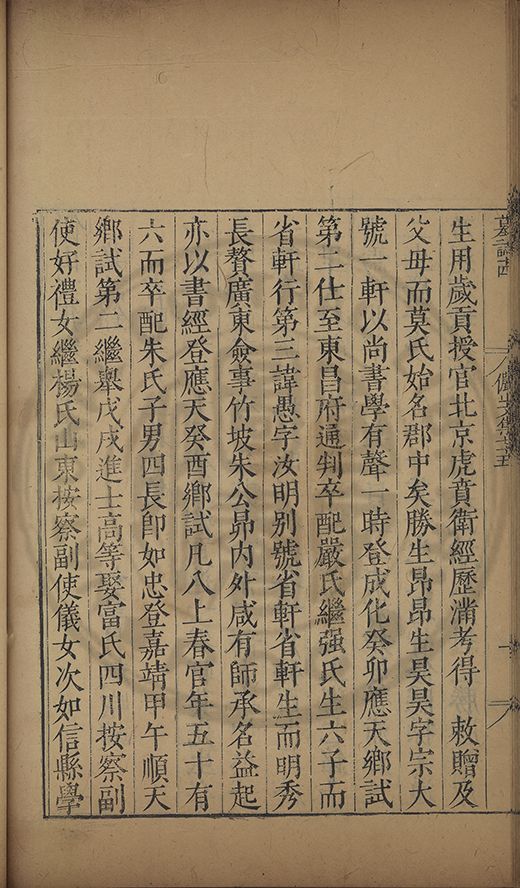 生用歲貢授官北京虎賁衛經歷滿考得 敕贈及
父母而莫氏始名郡中矣勝生昂昂生昊昊字宗大
號一軒以尚書學有聲一時登成化癸卯應天鄉試
第二仕至東昌府通判卒配嚴氏繼强氏生六子而
省軒行第三諱愚字汝明别號省軒省軒生而明秀
長贅廣東僉事竹坡朱公昻内外咸有師承名益起
亦以書經登應天癸酉鄉試凡八上春官年五十有
六而卒配朱氏子男四長即如忠登嘉靖甲午順天
鄉試第二繼舉戊戌進士高等娶富氏四川按察副
使好禮女繼楊氏山東按察副使儀女次如信縣學